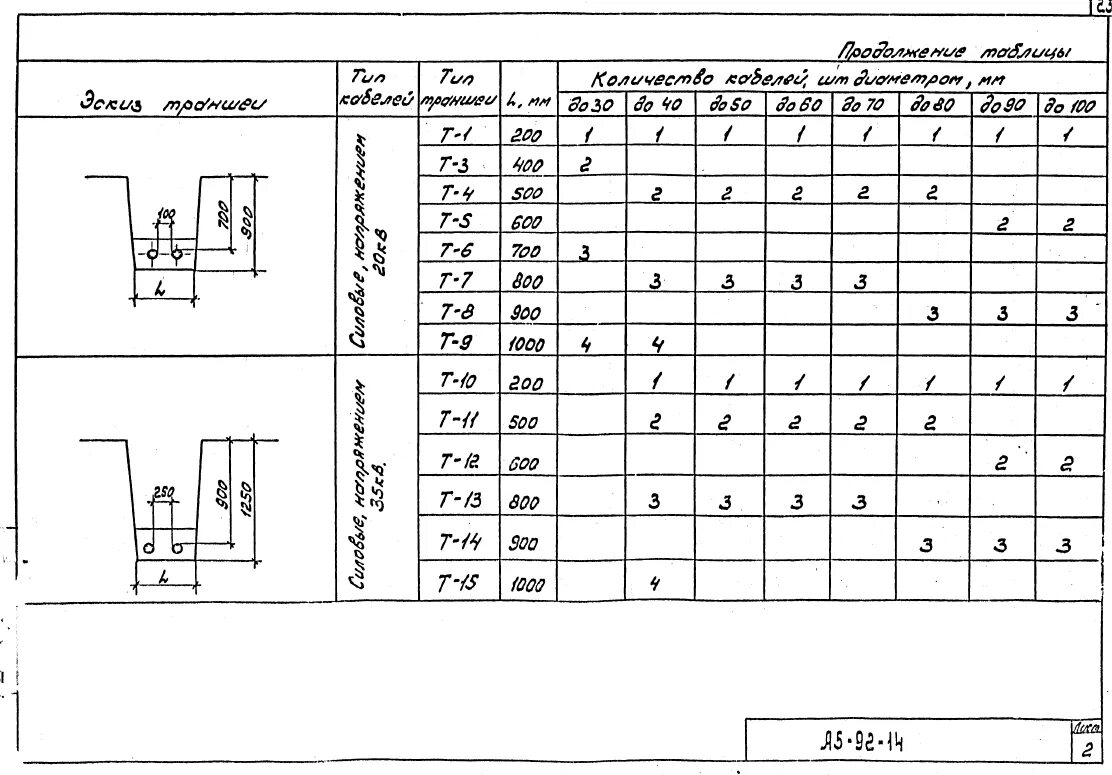 23
Продолжение таблицы
Эскиз траншеи
Тип кабелей
Тип траншеи
L, мм
Количество кабелей, шт диаметром, мм
до 30 до 40 до 50 до 60 до 70 до 80 до 90 до 100
Силовые, напряжением 20кВ
Т-1 200 1 1 1 1 1 1 1 1
Т-3 400 2
Т-4 500 2 2 2 2 2
Т-5 600 2 2
Т-6 700 3
Т-7 800 3 3 3 3
Т-8 900 3 3 3
Т-9 1000 4 4
100
700
900
L
Силовые, напряжением 35кВ.
Т-10 200 1 1 1 1 1 1 1
Т-11 500 2 2 2 2 2
Т-12 600 2 2
Т-13 800 3 3 3 3
Т-14 900 3 3 3
Т-15 1000 4
250
900
1250
L
А5-92-14
Лист
2